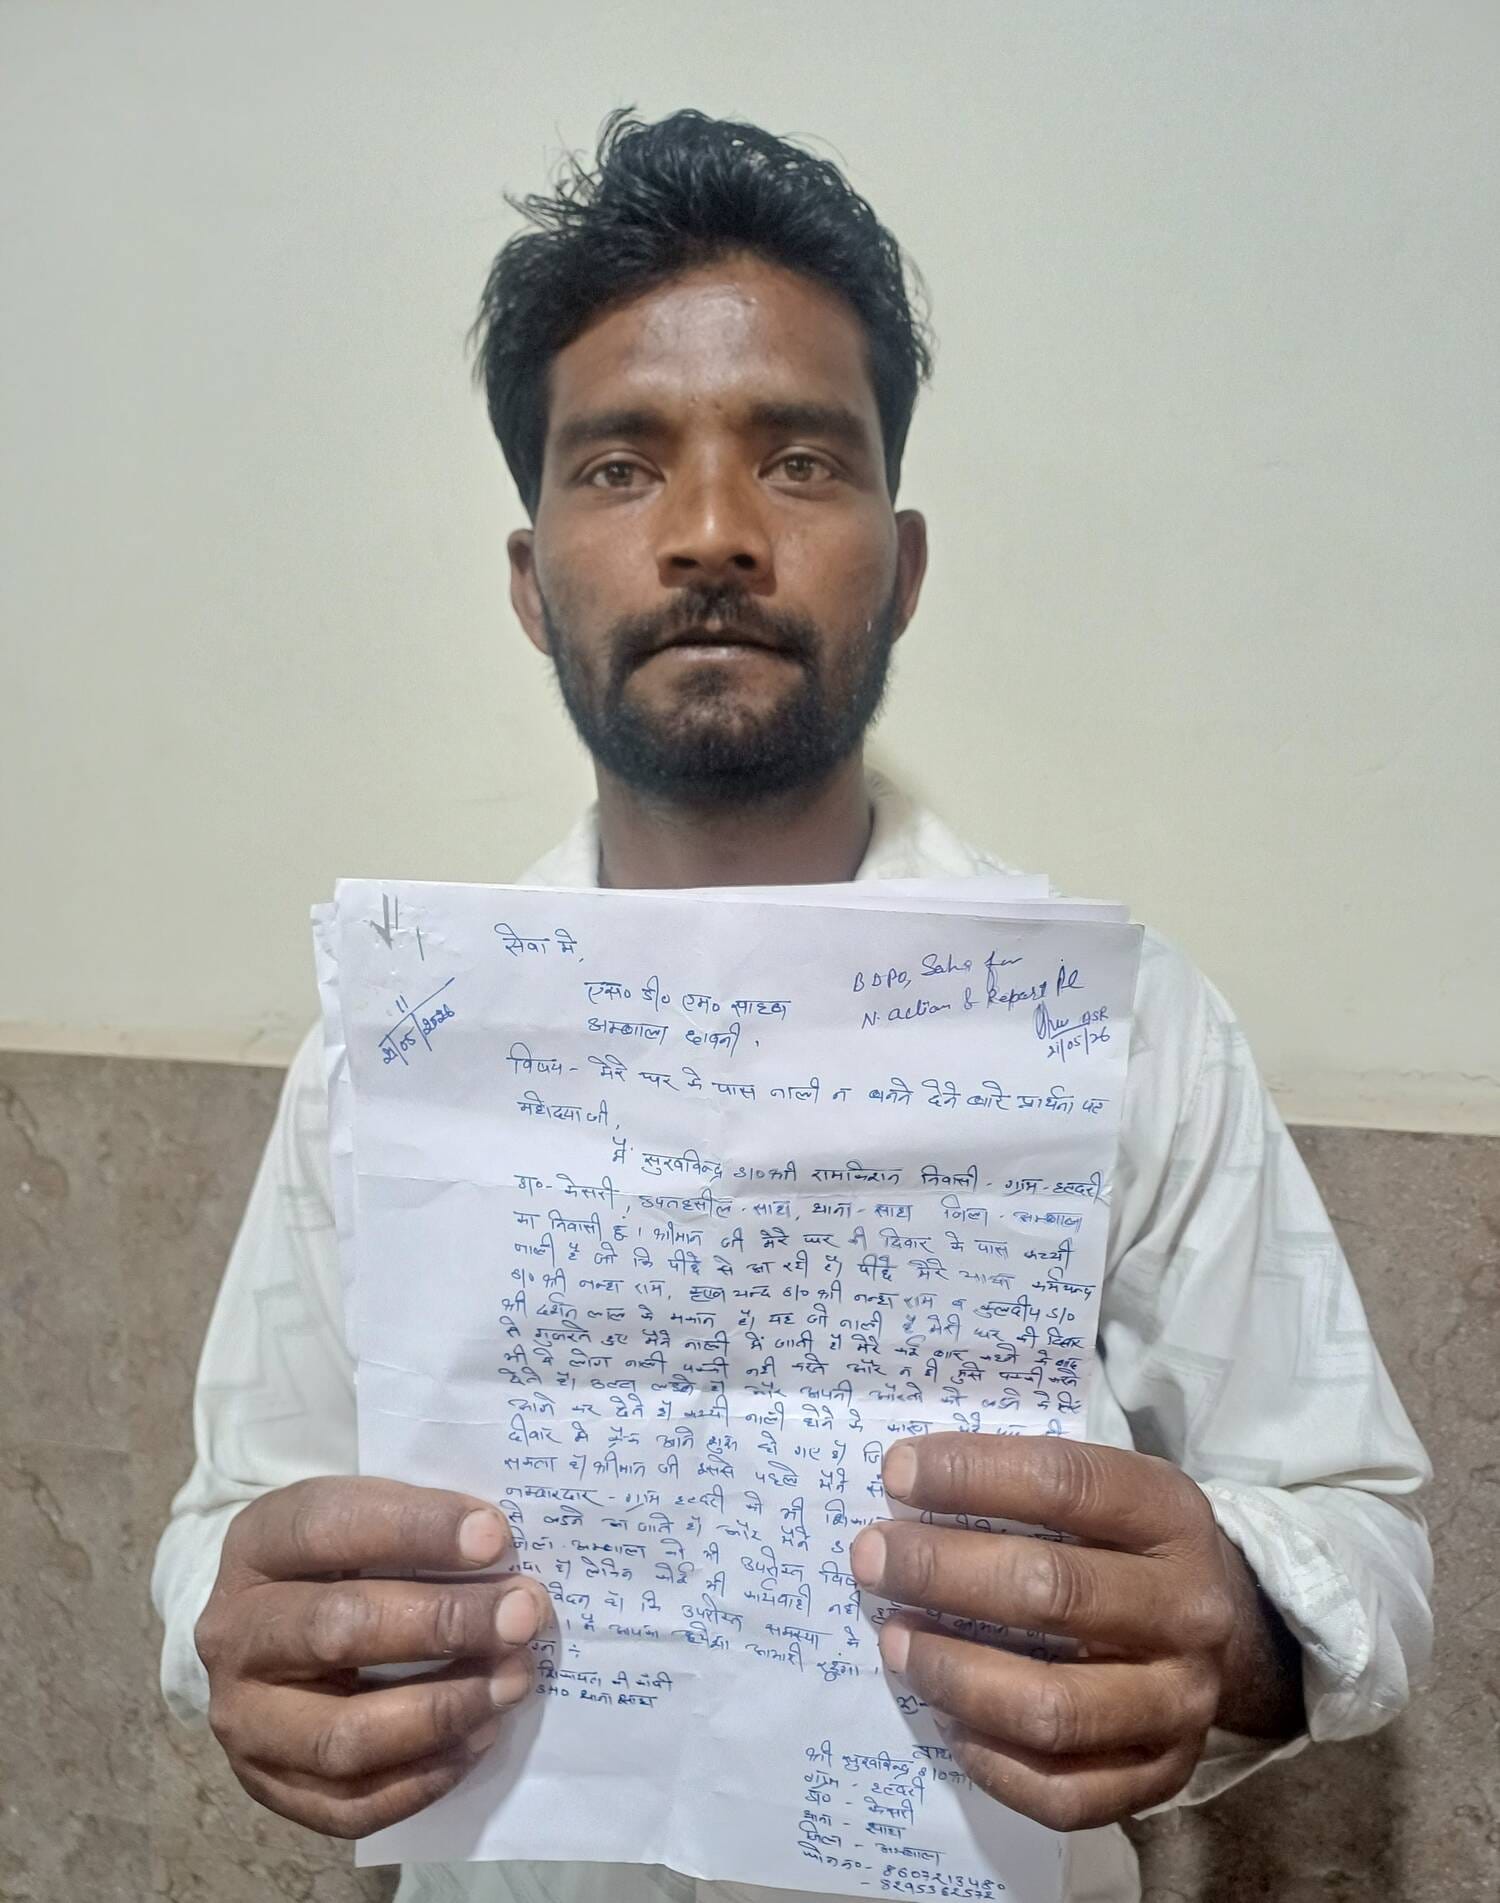 सेवा में,
एस० डी० एम० साहब
अम्बाला छावनी ,
BDPO, Saha for
N. action & Report Pl
21/05/26
21/05/2026
विषय - मेरे घर के पास नाली न बनने देने बारे प्रार्थना पत्र
महोदया जी,
मैं सुखविन्द्र S/० श्री रामकिशन निवासी - ग्राम - हल्दरी
डा०- केसरी, उपतहसील - साहा, थाना - साहा जिला - अम्बाला
का निवासी हूं। श्रीमान जी मेरे घर की दिवार के पास कच्ची
नाली है जो कि पीछे से आ रही है। पीछे मेरे चाचा कर्मचन्द
S/० श्री नन्हा राम, चन्द S/० श्री नन्हा राम व कुलदीप S/०
श्री दर्शन लाल के मकान है। यह जो नाली है मेरी घर की दिवार
से गुजरते हुए मैने नाली में जाती है। मेरे कई बार कहने के बाद
भी ये लोग नाली पक्की नही करते और न ही मुझे पक्की करने
देते है। उल्टा लडते है और अपनी औरतो को लडने के लिए
आगे कर देते है। कच्ची नाली होने के कारण मेरे घर की
दीवार मे आने शुरू हो गए है। जि
सकता है। श्रीमान जी इससे पहले मैंने
नम्बरदार - ग्राम हल्दरी को भी
से लडने आ जाते है। और मैंने
जिला - अम्बाला को भी उपरोक्त विषय
गया है। लेकिन कोई भी कार्यवाही नही हुई
वेदन है। कि उपरोक्त समस्या के
। मैं आपका हमेशा आभारी रहूंगा ।
शिकायत की कॉपी
SHO थाना साहा
श्री सुखविन्द्र S/० श्री
ग्राम - हल्दरी
डा० - केसरी
थाना - साहा
जिला - अम्बाला
फोन न०- 8607213480
- 8295362572